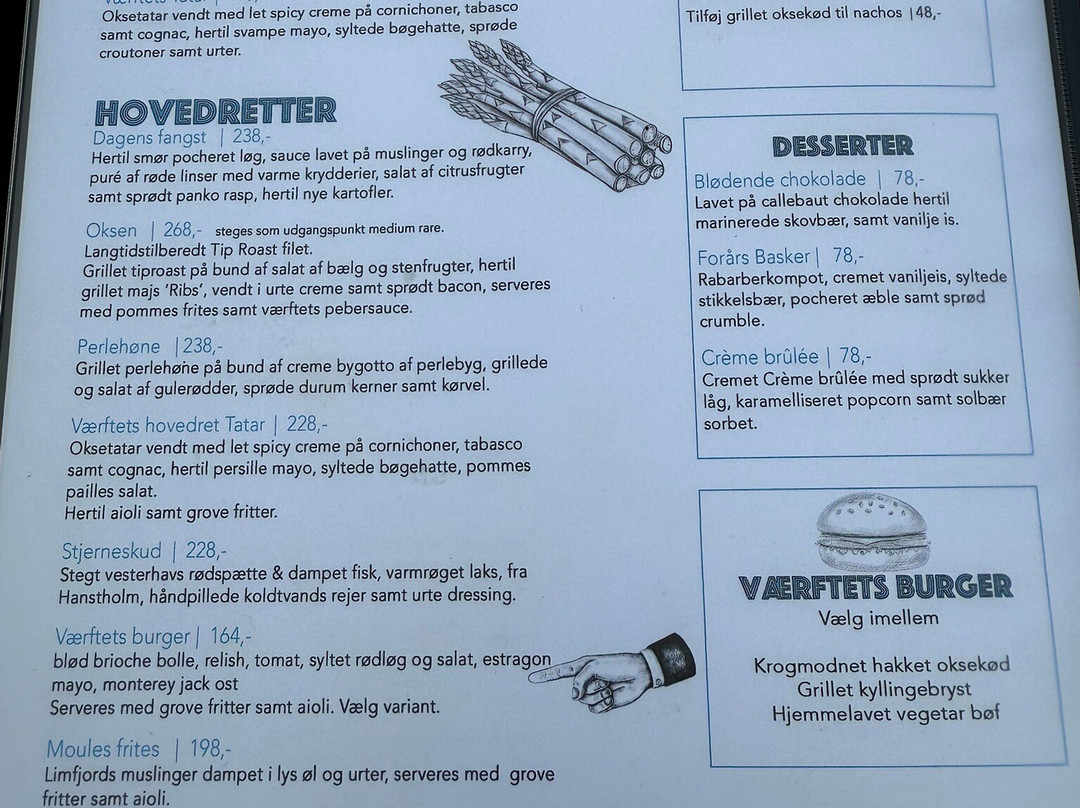 Oksetatar vendt med let spicy creme på cornichoner, tabasco
samt cognac, hertil svampe mayo, syltede bøgehatte, sprøde
croutoner samt urter.
HOVEDRETTER
Dagens fangst | 238,-
Hertil smør pocheret løg, sauce lavet på muslinger og rødkarry,
puré af røde linser med varme krydderier, salat af citrusfrugter
samt sprødt panko rasp, hertil nye kartofler.
Oksen | 268,- steges som udgangspunkt medium rare.
Langtidstilberedt Tip Roast filet.
Grillet tiproast på bund af salat af bælg og stenfrugter, hertil
grillet majs ‘Ribs’, vendt i urte creme samt sprødt bacon, serveres
med pommes frites samt værftets pebersauce.
Perlehøne | 238,-
Grillet perlehøne på bund af creme bygotto af perlebyg, grillede
og salat af gulerødder, sprøde durum kerner samt kørvel.
Værftets hovedret Tatar | 228,-
Oksetatar vendt med let spicy creme på cornichoner, tabasco
samt cognac, hertil persille mayo, syltede bøgehatte, pommes
pailles salat.
Hertil aioli samt grove fritter.
Stjerneskud | 228,-
Stegt vesterhavs rødspætte & dampet fisk, varmrøget laks, fra
Hanstholm, håndpillede koldtvands rejer samt urte dressing.
Værftets burger | 164,-
blød brioche bolle, relish, tomat, syltet rødløg og salat, estragon
mayo, monterey jack ost
Serveres med grove fritter samt aioli. Vælg variant.
Moules frites | 198,-
Limfjords muslinger dampet i lys øl og urter, serveres med grove
fritter samt aioli.
Tilføj grillet oksekød til nachos | 48,-
DESSERTER
Blødende chokolade | 78,-
Lavet på callebaut chokolade hertil
marinerede skovbær, samt vanilje is.
Forårs Basker | 78,-
Rabarberkompot, cremet vaniljeis, syltede
stikkelsbær, pocheret æble samt sprød
crumble.
Crème brûlée | 78,-
Cremet Crème brûlée med sprødt sukker
låg, karamelliseret popcorn samt solbær
sorbet.
VÆRFTETS BURGER
Vælg imellem
Krogmodnet hakket oksekød
Grillet kyllingebryst
Hjemmelavet vegetar bøf